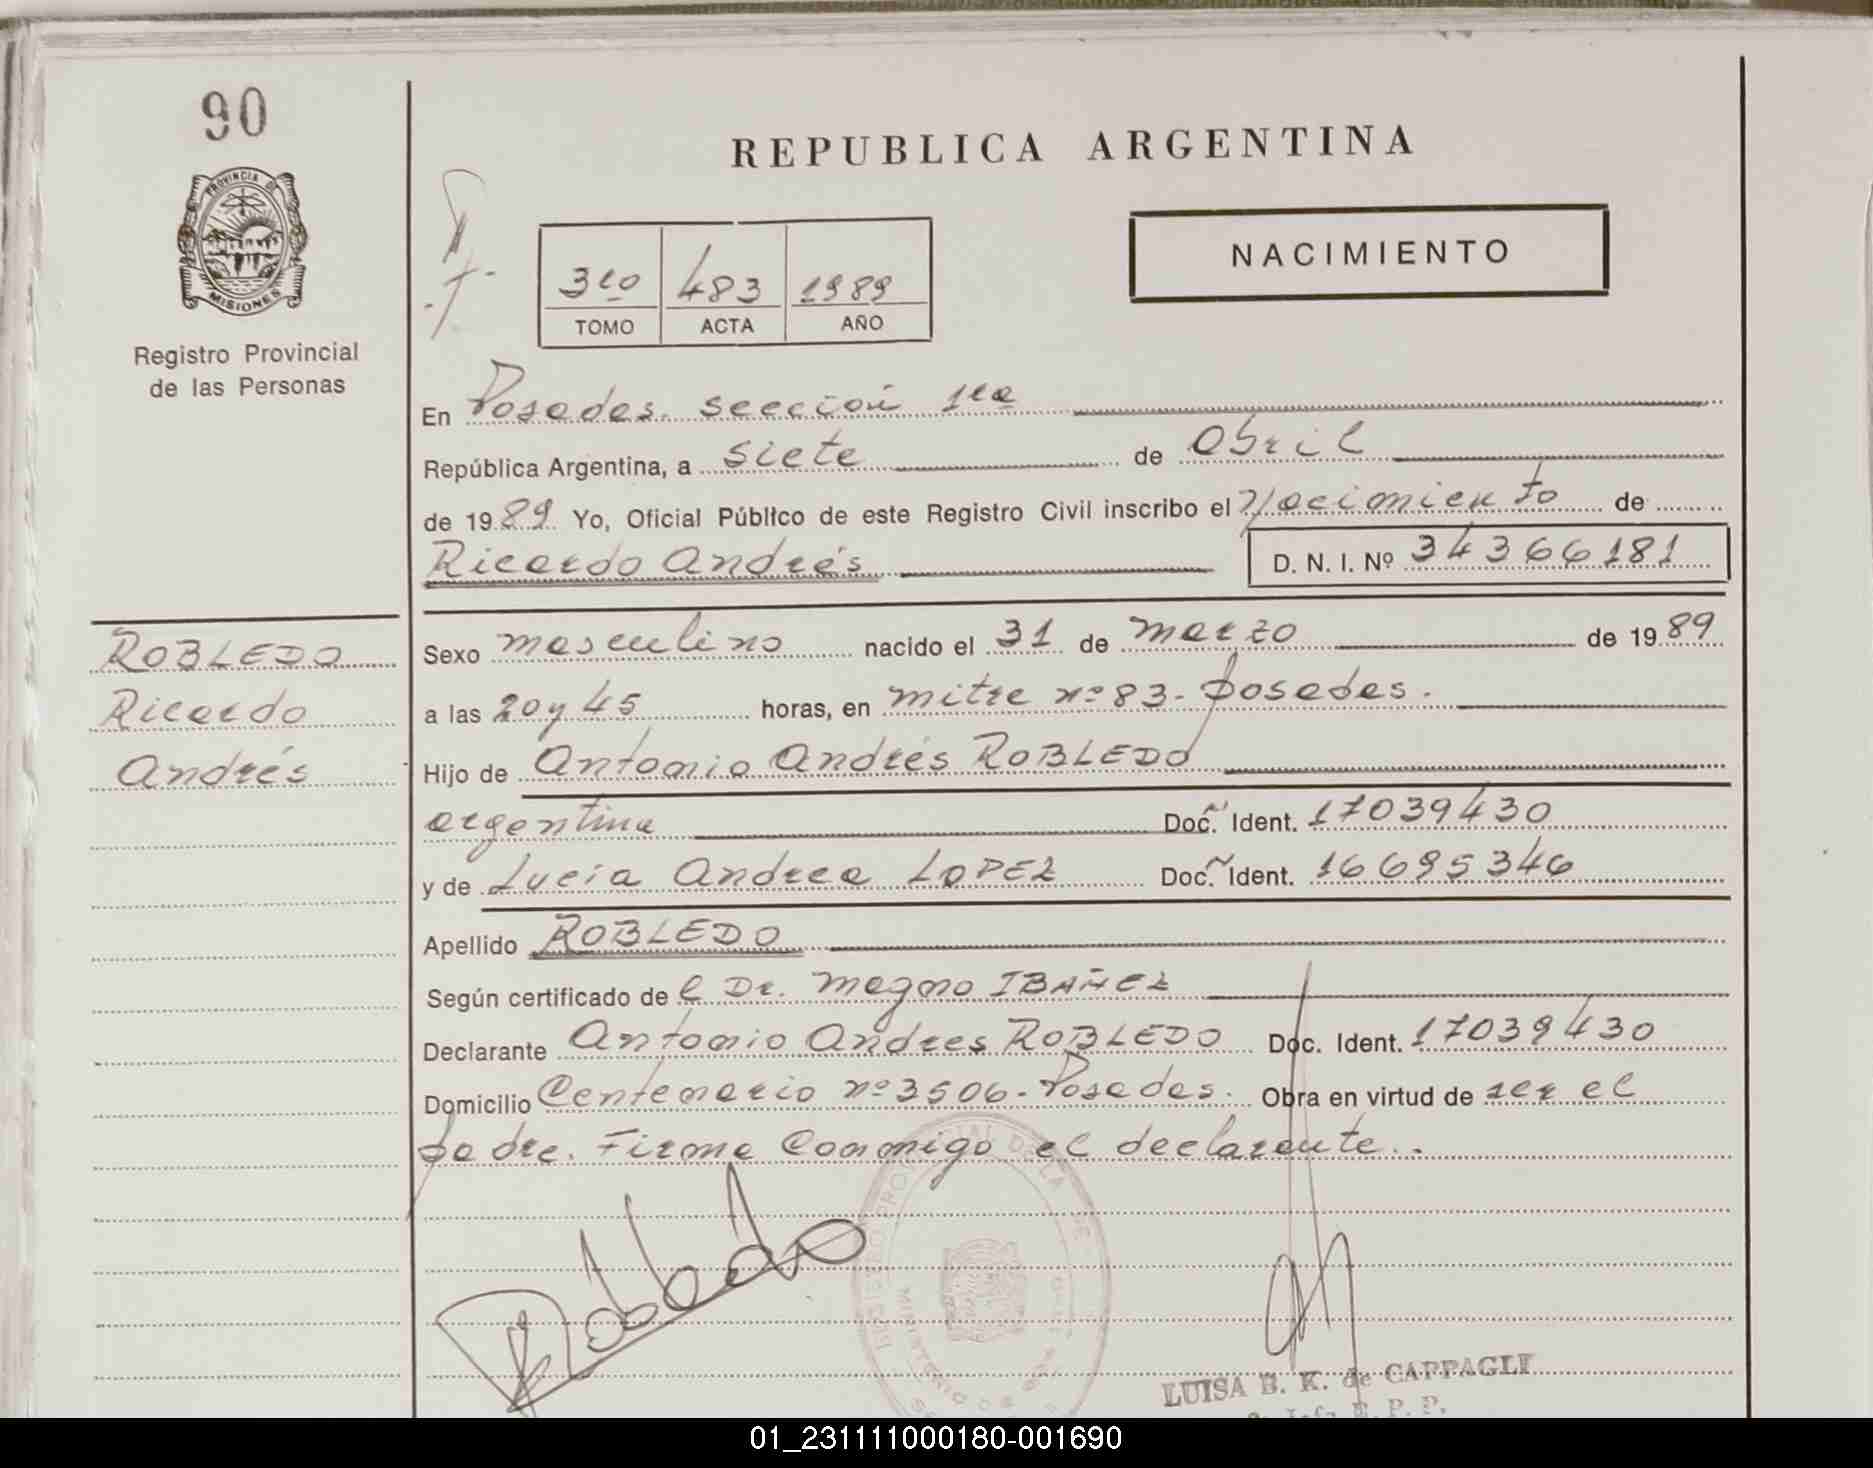 90
REPUBLICA ARGENTINA
PROVINCIA DE
MISIONES
NACIMIENTO
3ro 483 1989
TOMO ACTA AÑO
Registro Provincial
de las Personas
En Posadas. sección 1ra
República Argentina, a siete de Abril
de 1989 Yo, Oficial Público de este Registro Civil inscribo el Nacimiento de
Ricardo Andrés D. N. I. Nº 34366181
ROBLEDO
Ricardo
Andrés
Sexo masculino nacido el 31 de marzo de 1989
a las 20 y 45 horas, en mitre nº 83 - posadas.
Hijo de Antonio Andrés ROBLEDO
argentina Doc. Ident. 17039430
y de Lucía Andrea LOPEZ Doc. Ident. 16695346
Apellido ROBLEDO
Según certificado de l Dr. Magno IBAÑEZ
Declarante Antonio Andres ROBLEDO Doc. Ident. 17039430
Domicilio Centenario nº 3506 - Posadas. Obra en virtud de ser el
padre. Firma Conmigo el declarante..
Robledo
LUISA B. K. de CAPPAGLI
R. P. P.
01_231111000180-001690